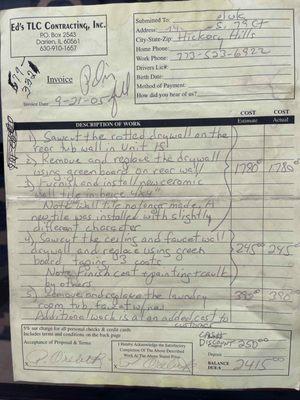 Ed's TLC Contracting, Inc.
P.O. Box 2543
Darien, IL 60561
630-910-1657
Invoice
Invoice Date: 9-21-05
Submitted To:
Address:
City-State-Zip: Hickory Hills
Home Phone:
Work Phone: 773-523-6922
Drivers Lic#:
Birth Date:
Method of Payment:
How did you hear of us?
DESCRIPTION OF WORK
COST Estimate
COST Actual
1) Sawcut the rotted drywall on the
rear tub wall in Unit 1S
2) Remove and replace the drywall
using greenboard on rear wall
1780
1780
3) Furnish and install new ceramic
wall tile in beige 4x4
Note: wall tile no longer made. A
new tile was installed with slightly
different character
4) Sawcut the ceiling and faucet wall
drywall and replace using green
board taping 3 coats
245.00
245
Note: Finish coat & painting & caulk
by others
5) Remove and replace the laundry
room tub faucet w/new
390
Additional work is at an added cost to
customer
5% sur charge for all personal checks & credit cards
includes terms and conditions on the back page
Acceptance of Proposal & Terms
I Hereby Acknowledge the Satisfactory
Completion Of The Above Described
Work At The Above Stated Price.
X
X
DISCOUNT 250.00
Deposit
BALANCE
DUE-$ 2415.00